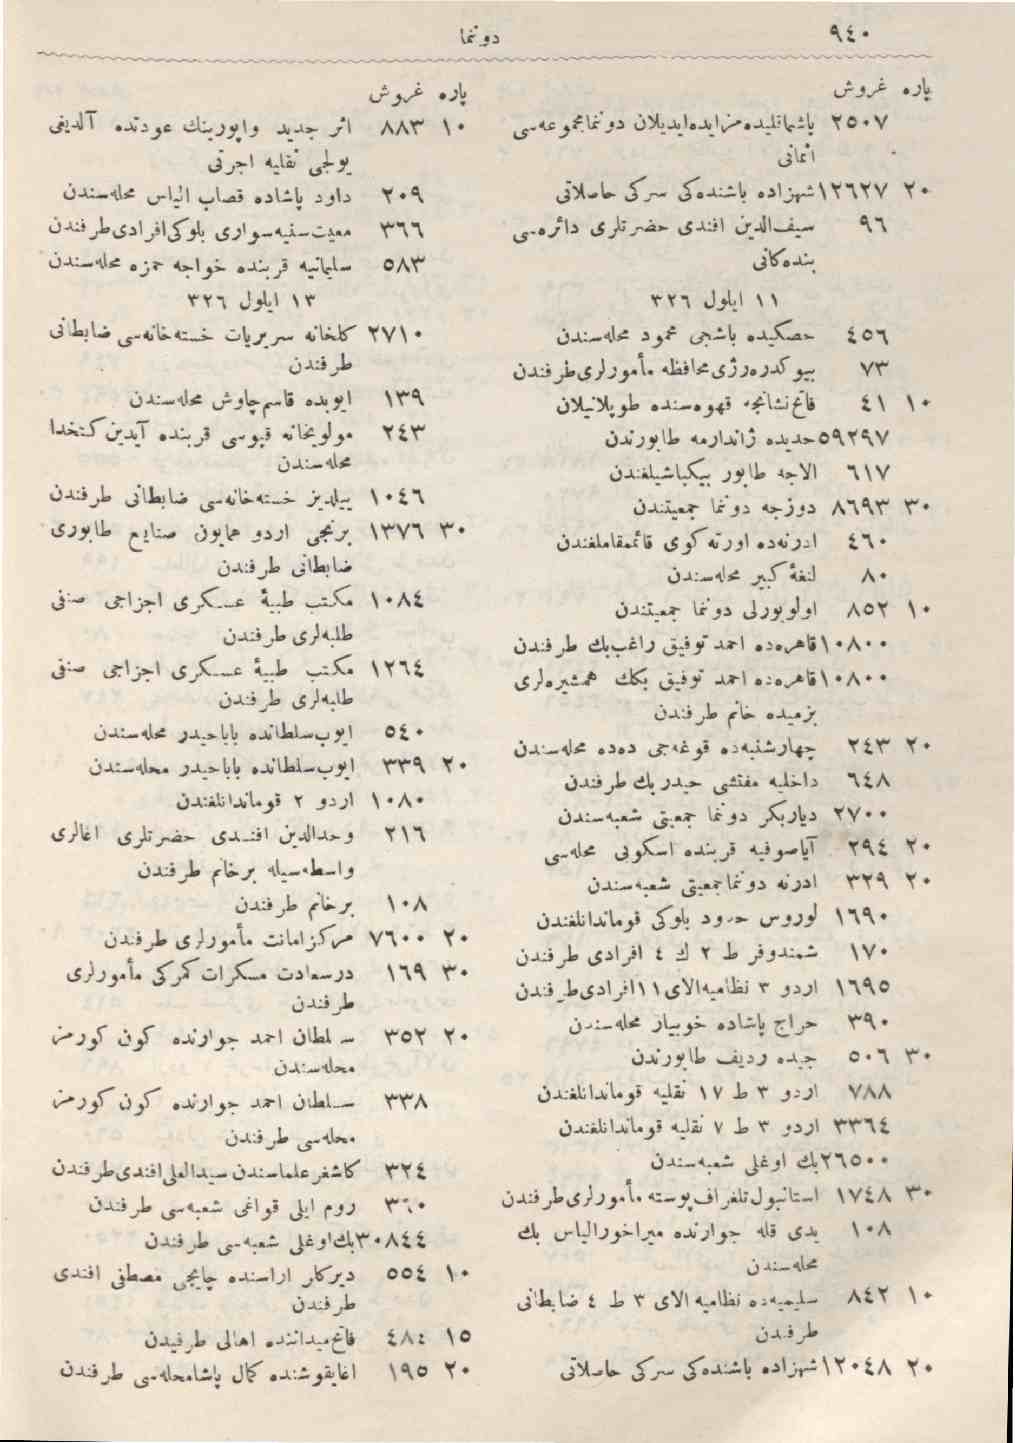 ٩٤٠
دوننما
پاره غروش
٢٥٠٧ پاشاقلیده مزایده ایدیلان دوننما مجموعه سی
اثمانی
٢٠ ١٢٦٢٧ شهزاده باشنده کی سرکی حاصلاتی
٩٦ سیف الدین افندی حضرتلری دائره سی
بنده کانی
١١ ایلول ٣٢٦
٤٥٦ حصکیده باشجی محمود محله سندن
٧٣ بیوکدره رژی محافظه مأمورلری طرفندن
١٠ ٤١ فاتح نشانجی قهوه سنده طوپلانیلان
٥٩٢٩٧ حدیده ژاندارمه طابورندن
٦١٧ الاجه طابور بیکباشیلغندن
٣٠ ٨٦٩٣ دوزجه دوننما جمعیتندن
٤٦٠ ادرنه ده اورته کوی قائممقاملغندن
٨٠ لنغۀ کبیر محله سندن
١٠ ٨٥٢ اولوبورلی دوننما جمعیتندن
١٠٨٠٠ قاهره ده احمد توفیق راغب بك طرفندن
١٠٨٠٠ قاهره ده احمد توفیق بكك همشیره لری
بزمیده خانم طرفندن
٢٠ ٢٤٣ چهارشنبه ده قوغه جی دده محله سندن
٦٤٨ داخلیه مفتشی حیدر بك طرفندن
٢٧٠٠ دیاربكر دوننما جمعیتی شعبه سندن
٢٠ ٢٩٤ آیاصوفیه قربنده اسکوبی محله سی
٢٠ ٣٢٩ ادرنه دوننما جمعیتی شعبه سندن
١٦٩٠ لوروس حدود بلوکی قوماندانلغندن
١٧٠ شمندوفر ط ٢ ك ٤ افرادی طرفندن
١٦٩٥ اردو ٣ نظامیه الای ١١ افرادی طرفندن
٣٩٠ حراج پاشاده خوبیار محله سندن
٣٠ ٥٠٦ جبده ردیف طابورندن
٧٨٨ اردو ٣ ط ١٧ نقلیه قوماندانلغندن
٣٣٦٤ اردو ٣ ط ٧ نقلیه قوماندانلغندن
٢٦٥٠٠ بك اوغلی شعبه سندن
٣٠ ١٧٤٨ استانبول تلغراف پوسته مأمورلری طرفندن
١٠٨ یدی قله جوارنده میراخور الیاس بك
محله سندن
١٠ ٨٤٢ سلیمیه ده نظامیه الای ٣ ط ٤ ضابطانی
طرفندن
٢٠ ١٢٠٤٨ شهزاده باشنده کی سرکی حاصلاتی
پاره غروش
١٠ ٨٨٣ اثر جدید واپورینك عودتده آلدیغی
یولجی نقلیه اجرتی
٢٠٩ داود پاشاده قصاب الیاس محله سندن
٣٦٦ معیت سنیه سواری بلوکی افرادی طرفندن
٥٨٣ سلیمانیه قربنده خواجه حمزه محله سندن
١٣ ایلول ٣٢٦
٢٧١٠ کلخانه سریریات خسته خانه سی ضابطانی
طرفندن
١٣٩ ایوبده قاسم چاوش محله سندن
٢٤٣ مولویخانه قپوسی قربنده آیدین کتخدا
محله سندن
١٠٤٦ ییلدیز خسته خانه سی ضابطانی طرفندن
٣٠ ١٣٧٦ برنجی اردو همایون صنایع طابوری
ضابطانی طرفندن
١٠٨٤ مكتب طبیۀ عسكری اجزاجی صنفی
طلبه لری طرفندن
١٢٦٤ مكتب طبیۀ عسكری اجزاجی صنفی
طلبه لری طرفندن
٥٤٠ ایوب سلطانده باباحیدر محله سندن
٢٠ ٣٣٩ ایوب سلطانده باباحیدر محله سندن
١٠٨٠ اردو ٢ قوماندانلغندن
٢١٦ وحدالدین افندی حضرتلری اغالری
واسطه سیله برخانم طرفندن
١٠٨ برخانم طرفندن
٢٠ ٧٦٠٠ مركز امانت مأمورلری طرفندن
٣٠ ١٦٩ درسعادت مسكرات كمركی مأمورلری
طرفندن
٢٠ ٣٥٢ سلطان احمد جوارنده كون كورمز
محله سندن
٣٣٨ سلطان احمد جوارنده كون كورمز
محله سی طرفندن
٣٢٤ كاشغر علماسندن سیدالعلی افندی طرفندن
روم ایلی قواغی شعبه سی طرفندن
٣٠٨٤٤ بك اوغلی شعبه سی طرفندن
١٠ ٥٥٤ دیركلر اراسنده چایجی مصطفی افندی
طرفندن
١٥ ٤٨٤ فاتح میداننده اهالی طرفیدن
٢٠ ١٩٥ اغایقوشنده كمال پاشا محله سی طرفندن